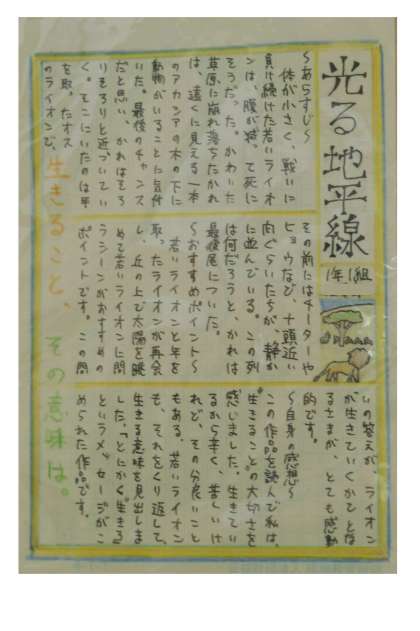 光る地平線
1年.1組
～あらすじ～
体が小さく、戦いに
負け続けた若いライオ
ンは、腹が減って死に
そうだった。かわいた
草原に崩れ落ちたかれ
は、遠くに見える一本
のアカシアの木の下に
動物がいることに気付
いた。最後のチャンス
だと思い、かれはそろ
りそろりと近づいてい
く。そこにいたのは年
を取ったオス
のライオンで、
その前にはチーターや
ヒョウなど、十頭近い
肉ぐらいたちが、静か
に並んでいる。この列
は何だろうと、かれは
最後尾についた。
～おすすめポイント～
若いライオンと年を
取ったライオンが再会
し、丘の上で太陽を眺
めて若いライオンに問
うシーンがおすすめの
ポイントです。この問
いの答えが、ライオン
が生きていくかてとな
るさまが、とても感動
的です。
～自身の感想～
この作品を読んで私は、
"生きること"の大切さを
感じました。生きてい
るから辛く、苦しいけ
れど、その分良いこと
もある。若いライオン
も、それをくり返して、
生きる意味を見出しま
した。「とにかく"生きる"」
というメッセージがこ
められた作品です。
生きること、その意味は。